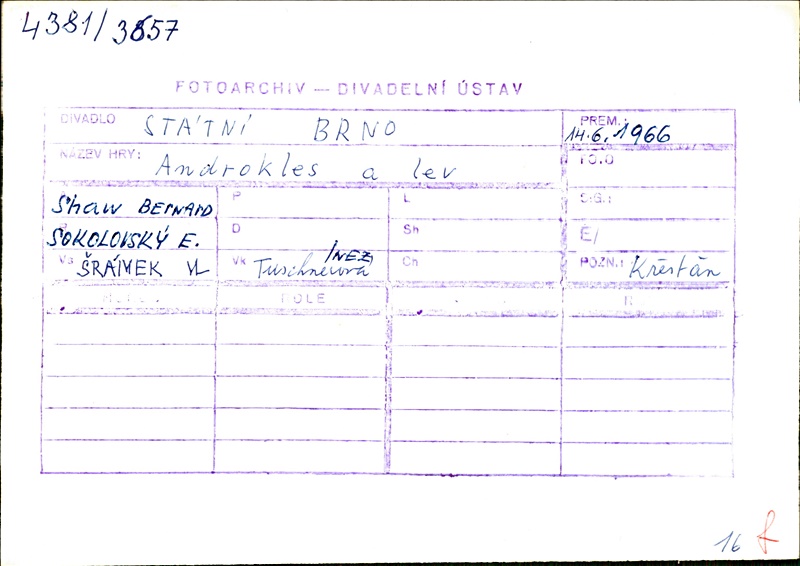 4381/3857
FOTOARCHIV — DIVADELNÍ ÚSTAV
DIVADLO STÁTNÍ BRNO PREM.: 14.6.1966
NÁZEV HRY: Androkles a lev FOTO
Shaw BERNARD P L SIG.:
SOKOLOVSKÝ E. D Sh E/
Vs ŠRÁMEK VL Vk Tuschnerová INEZ Ch POZN.: Křesťan
ROLE
16